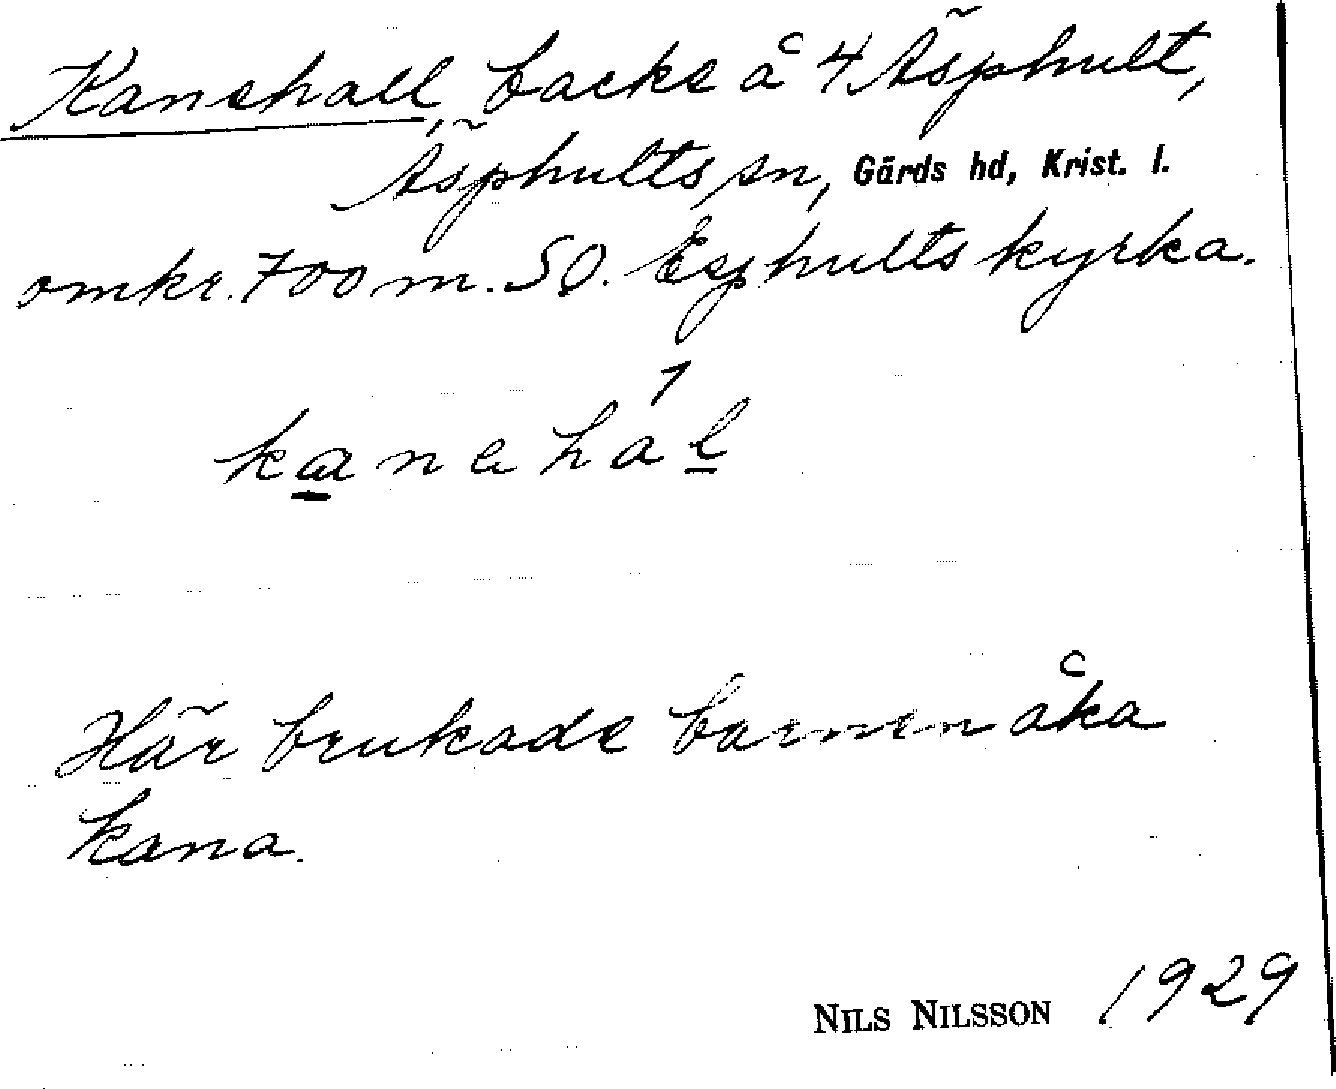 Kanehall, backe å 4 Äsphult,
Äsphults sn, Gärds hd, Krist. l.
omkr. 700 m. SO. Esphults kyrka.
kanəhal
Här brukade barnen åka
kana.
NILS NILSSON 1929